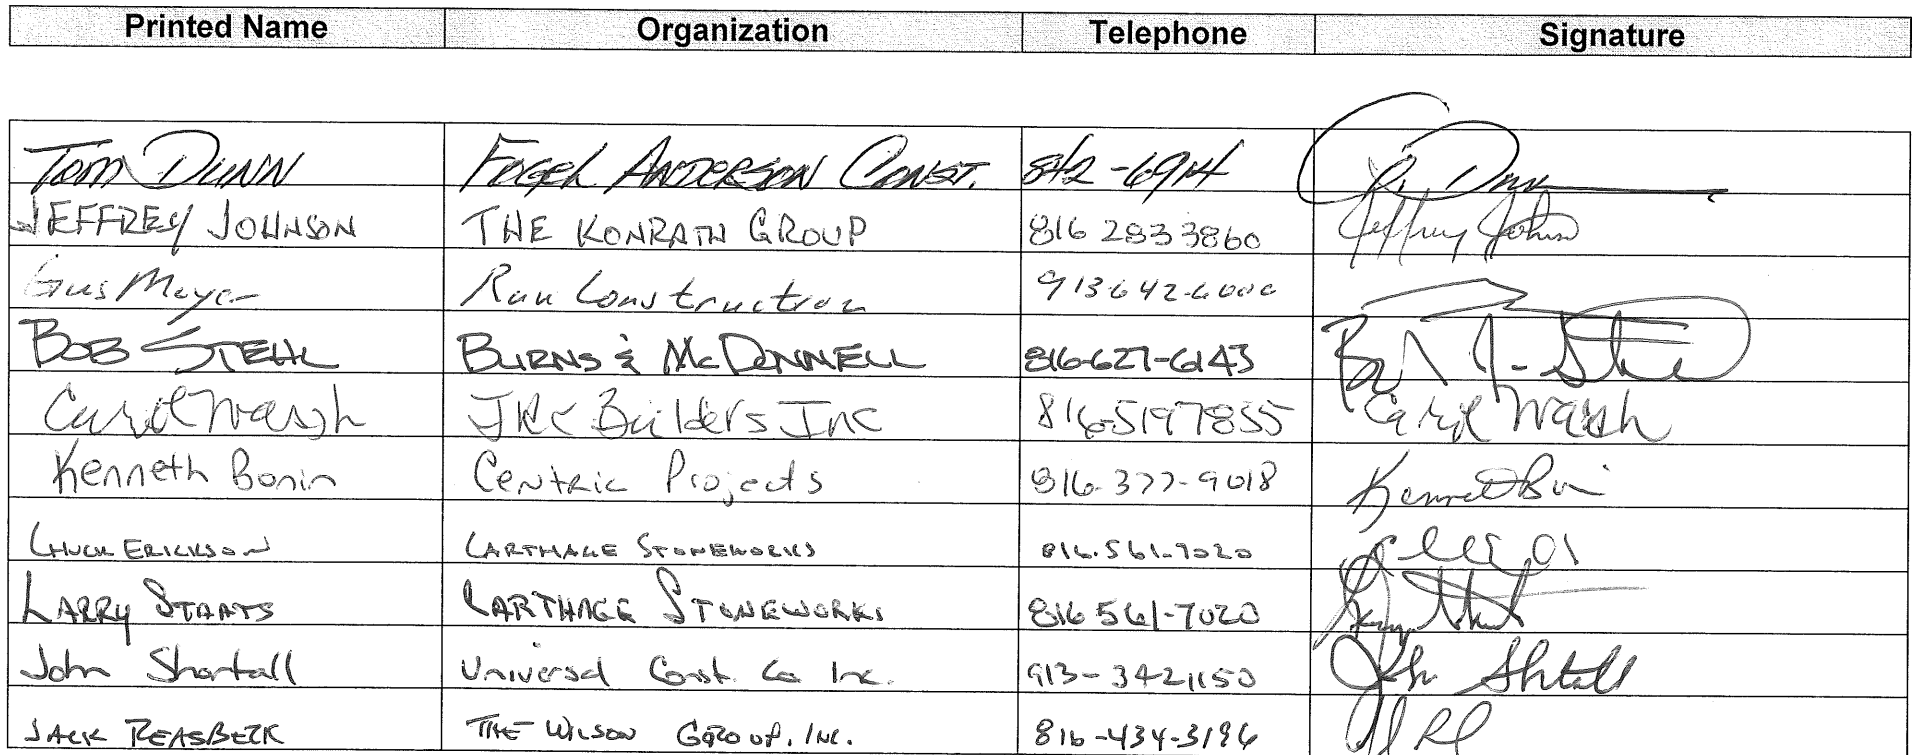 Printed Name Organization Telephone Signature
Tom Dunn Fogel Anderson Const. 842-6914
Jeffrey Johnson The Konrath Group 816 283 3860 Jeffrey Johnson
Gus Meyer Rau Construction 913-642-6000
Bob Stehl Burns & McDonnell 816-627-6143
Carol Warsh JKC Builders Inc 816-519 7855 Carol Warsh
Kenneth Bonin Centric Projects 816-377-9018
Chuck Erickson Carthage Stoneworks 816.561.7020
Larry Staats Carthage Stoneworks 816 561-7020
John Shortall Universal Const. Co Inc. 913-342-1150
Jack Reasbeck The Wilson Group, Inc. 816-434-3196